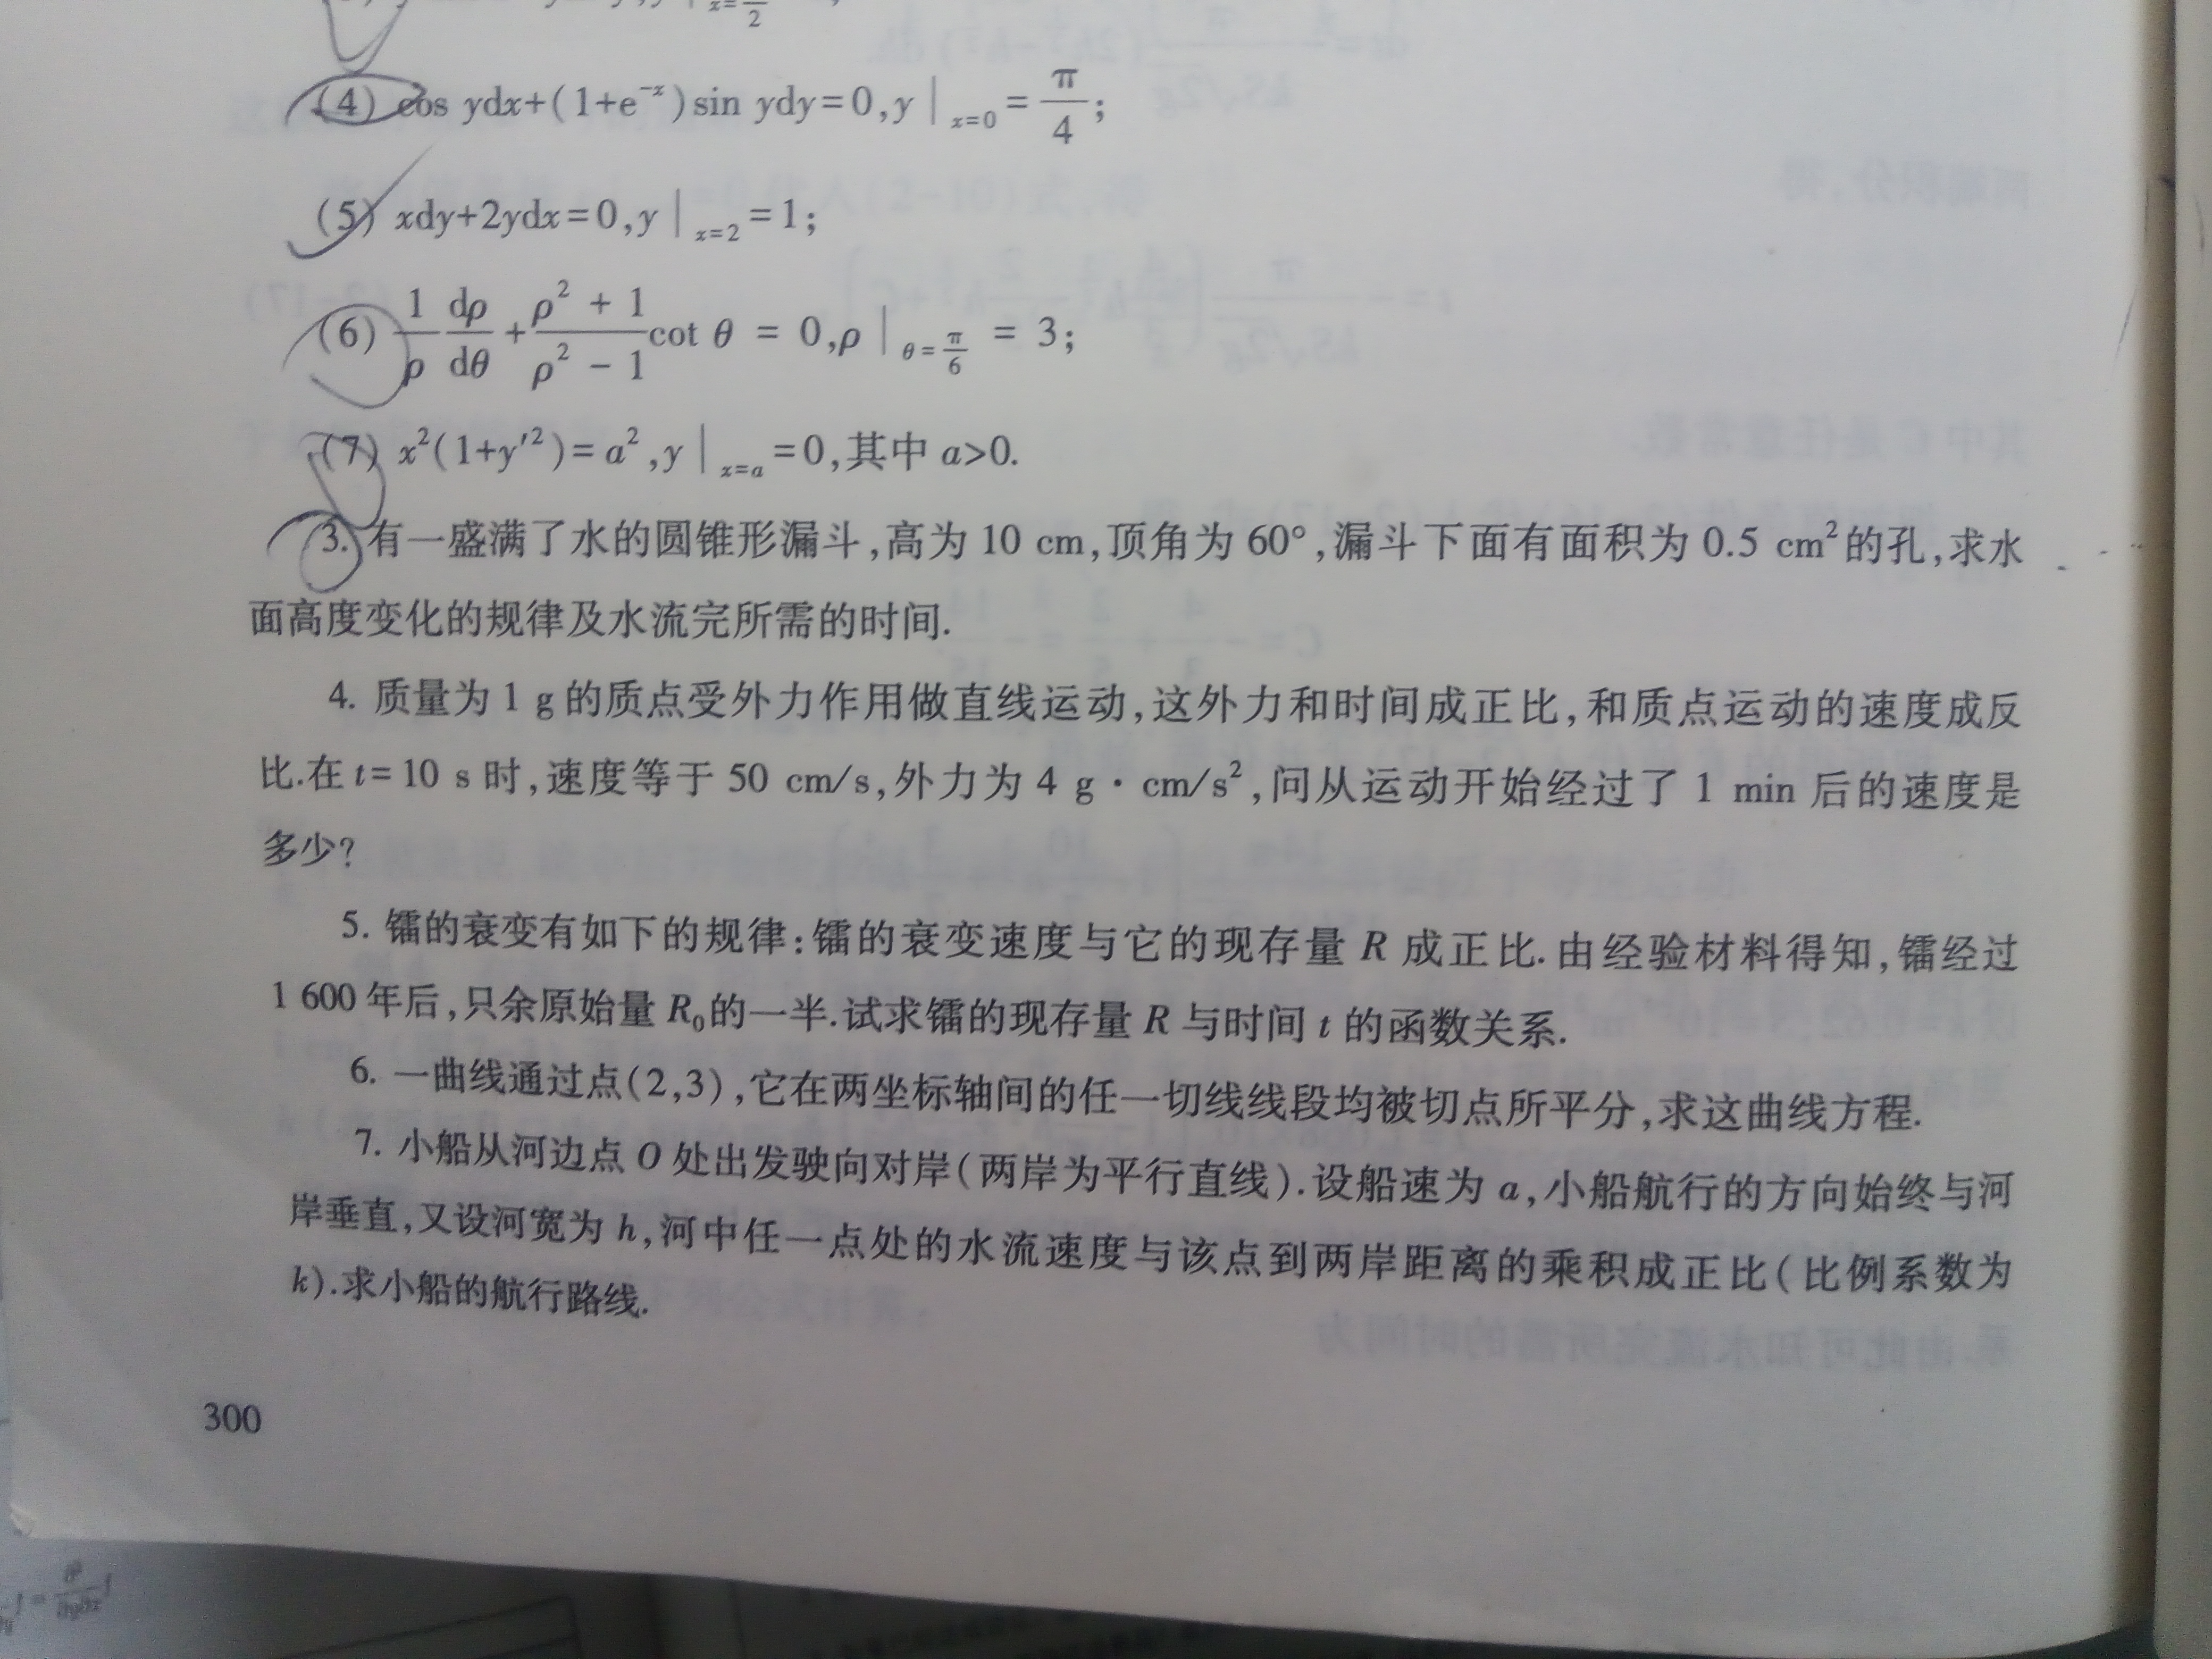 (4) cos ydx+(1+e⁻ˣ)sin ydy=0,y|ₓ₌₀=π/4;
(5) xdy+2ydx=0,y|ₓ₌₂=1;
(6) 1/ρ dρ/dθ+(ρ²+1)/(ρ²-1)cot θ=0,ρ|θ=π/6=3;
(7) x²(1+y′²)=a²,y|ₓ₌ₐ=0,其中 a>0.
3. 有一盛满了水的圆锥形漏斗,高为 10 cm,顶角为 60°,漏斗下面有面积为 0.5 cm²的孔,求水
面高度变化的规律及水流完所需的时间.
4. 质量为 1 g 的质点受外力作用做直线运动,这外力和时间成正比,和质点运动的速度成反
比.在 t=10 s 时,速度等于 50 cm/s,外力为 4 g·cm/s²,问从运动开始经过了 1 min 后的速度是
多少?
5. 镭的衰变有如下的规律:镭的衰变速度与它的现存量 R 成正比.由经验材料得知,镭经过
1 600 年后,只余原始量 R₀的一半.试求镭的现存量 R 与时间 t 的函数关系.
6. 一曲线通过点(2,3),它在两坐标轴间的任一切线线段均被切点所平分,求这曲线方程.
7. 小船从河边点 O 处出发驶向对岸(两岸为平行直线).设船速为 a,小船航行的方向始终与河
岸垂直,又设河宽为 h,河中任一点处的水流速度与该点到两岸距离的乘积成正比(比例系数为
k).求小船的航行路线.
300